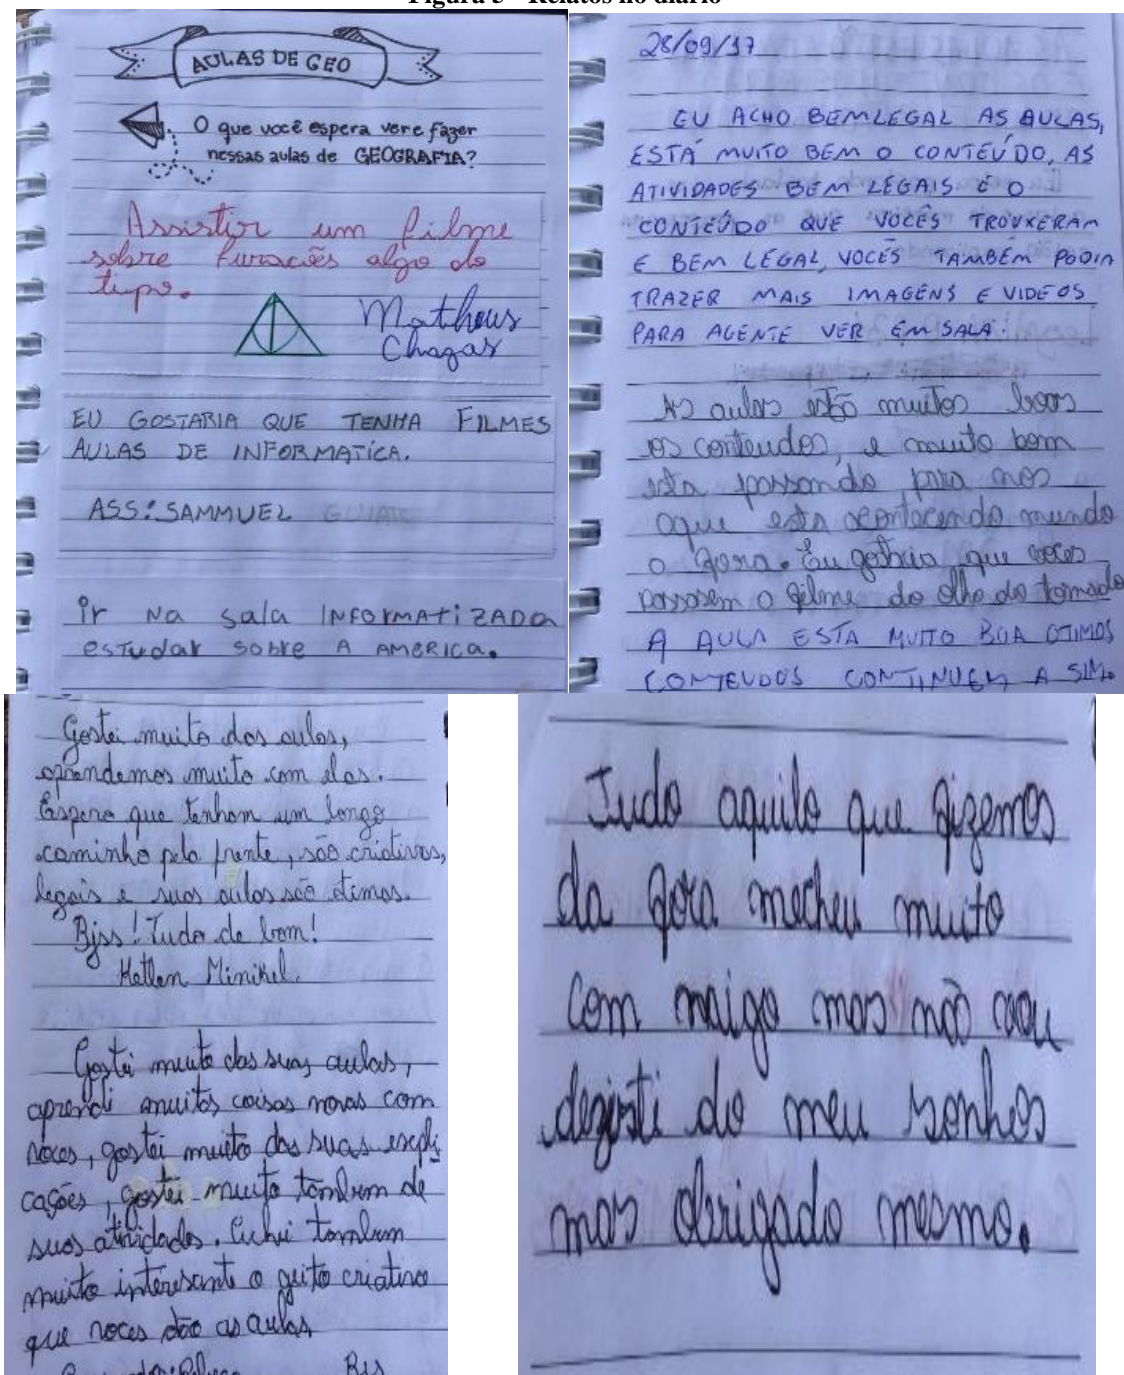 Figura 3 - Relatos no diário
AULAS DE GEO
O que você espera ver e fazer
nessas aulas de GEOGRAFIA?
Assistir um filme
sobre furacões algo do
tipo.
Matheus
Chagas
EU GOSTARIA QUE TENHA FILMES
AULAS DE INFORMATÍCA.
ASS: SAMMUEL
ir na sala INFORMATIZADA
estudar sobre A AMERICA.
28/09/17
EU ACHO BEM LEGAL AS AULAS,
ESTÁ MUITO BEM O CONTEÚDO, AS
ATIVIDADES BEM LEGAIS É O
CONTEÚDO QUE VOCÊS TROUXERAM
E BEM LEGAL, VOCÊS TAMBÉM PODIA
TRAZER MAIS IMAGENS E VIDEOS
PARA AGENTE VER EM SALA.
As aulas estão muitos boas
os conteudos, e muito bom
esta passando para nos
oque esta acontecendo mundo
a fora. Eu gostaria que voces
passasem o filme do olho do tornado
A AULA ESTA MUITO BOA OTIMOS
CONTEUDOS CONTINUEM A SIM.
Gostei muito das aulas,
aprendemos muito com elas.
Espero que tenham um longo
caminho pela frente, são criativos,
legais e suas aulas são otimas.
Bjss! Tudo de bom!
Ketlen Minikel.
Gostei muito das suas aulas,
aprendi muitas coisas novas com
voces, gostei muito das suas expli
cações, gostei muito tambem de
suas atividades. Achei tambem
muito interesante o geito criativo
que voces dão as aulas
Bjs
Tudo aquilo que fizemos
da fora mecheu muito
com migo mas não vou
dezisti do meu sonhos
mas obrigado mesmo.